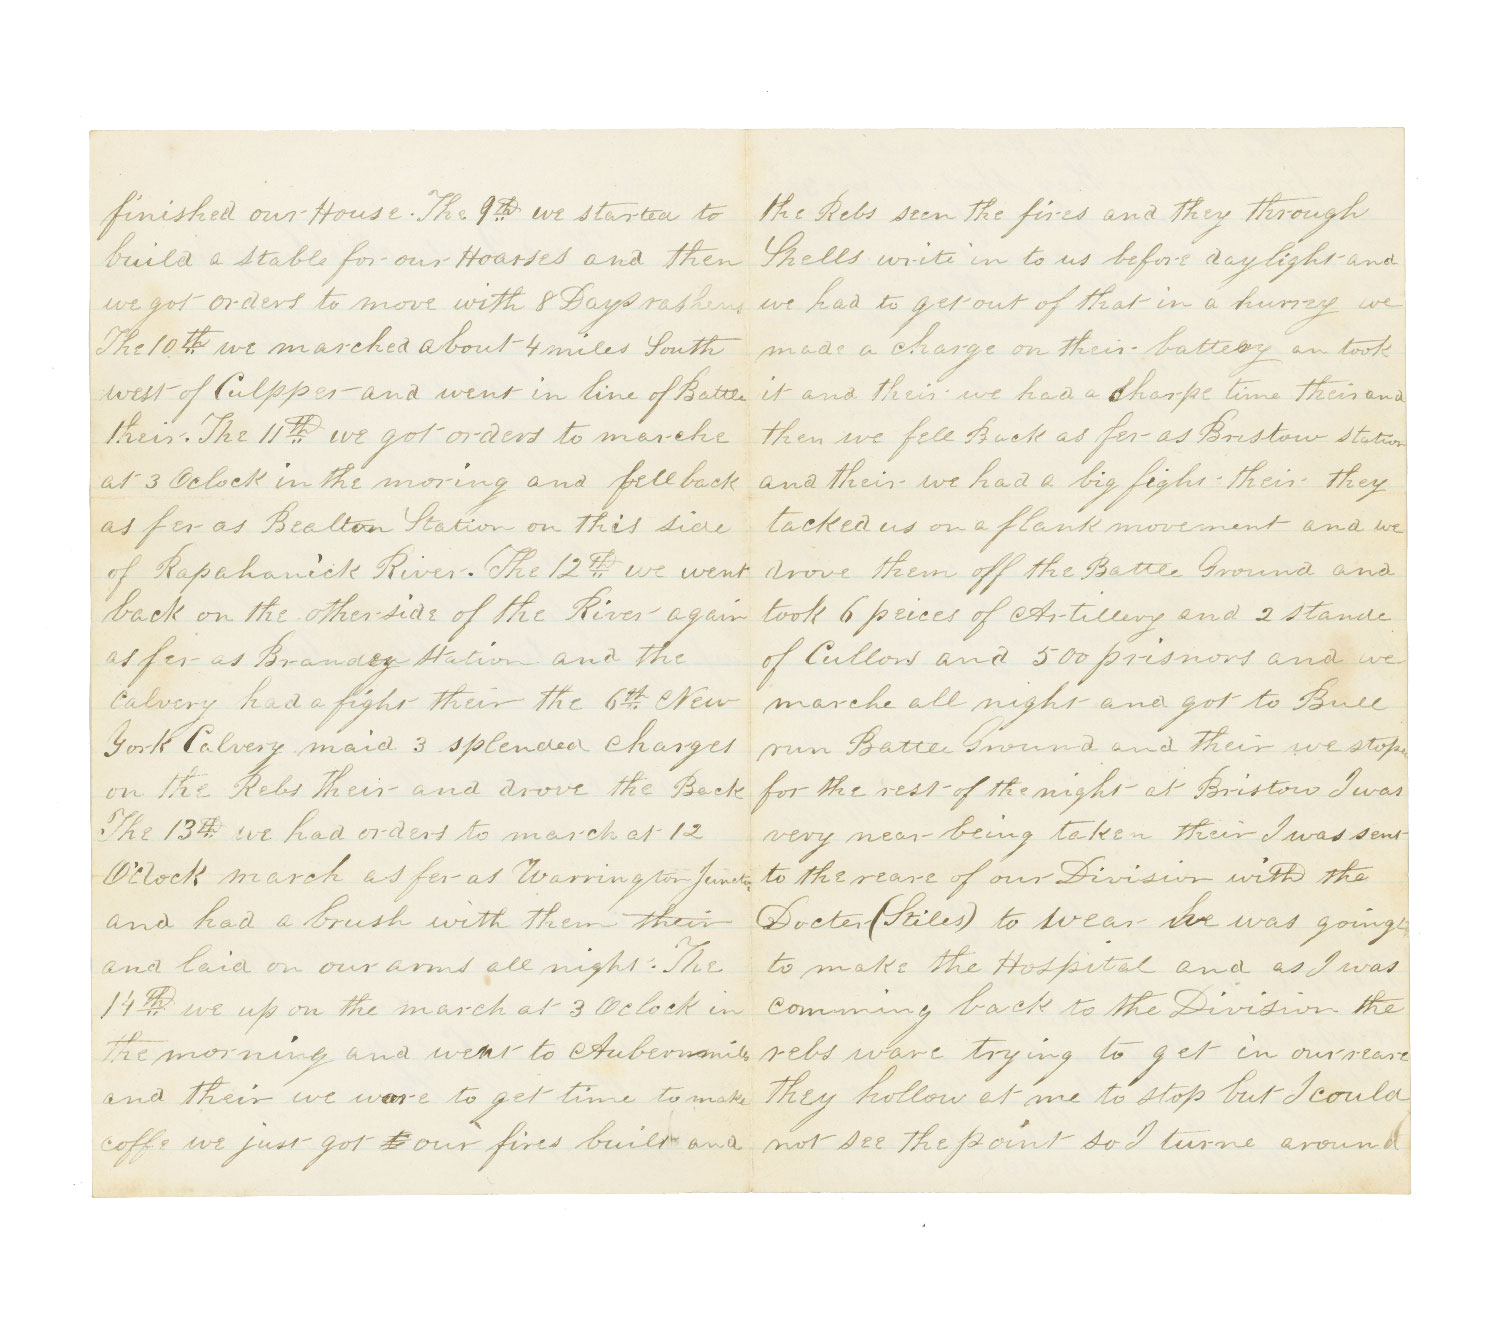 finished our House. The 9th we started to
build a stable for our Hoarses and then
we got orders to move with 8 Days rashens
The 10th we marched about 4 miles South
west of Culpper and went in line of Battle
their. The 11th we got orders to marche
at 3 Oclock in the moring and fell back
as fer as Bealton Station on this side
of Rapahanick River. The 12th we went
back on the other side of the River again
as fer as Brandey Station and the
Calvery had a fight their the 6th New
York Calvery maid 3 splended charges
on the Rebs their and drove the Back
The 13th we had orders to march at 12
O'clock march as fer as Warrington Junctn
and had a brush with them their
and laid on our arms all night. The
14th we up on the march at 3 Oclock in
the morning and went to Aubernmills
and their we ware to get time to make
coffe we just got our fires built and
the Rebs seen the fires and they through
Shells write in to us before daylight and
we had to get out of that in a hurrey we
made a charge on their battery an took
it and their we had a sharpe time their and
then we fell Back as fer as Bristow station
and their we had a big fight their they
tacked us on a flank movement and we
drove them off the Battle Ground and
took 6 peices of Artillery and 2 stande
of Cullors and 500 prisnors and we
marche all night and got to Bull
run Battle Ground and their we stope
for the rest of the night at Bristow I was
very near being taken their I was sent
to the reare of our Division with the
Docter (Stiles) to wear he was going
to make the Hospital and as I was
comming back to the Division the
rebs ware trying to get in our reare
they hollow at me to stop but I could
not see the point so I turne around